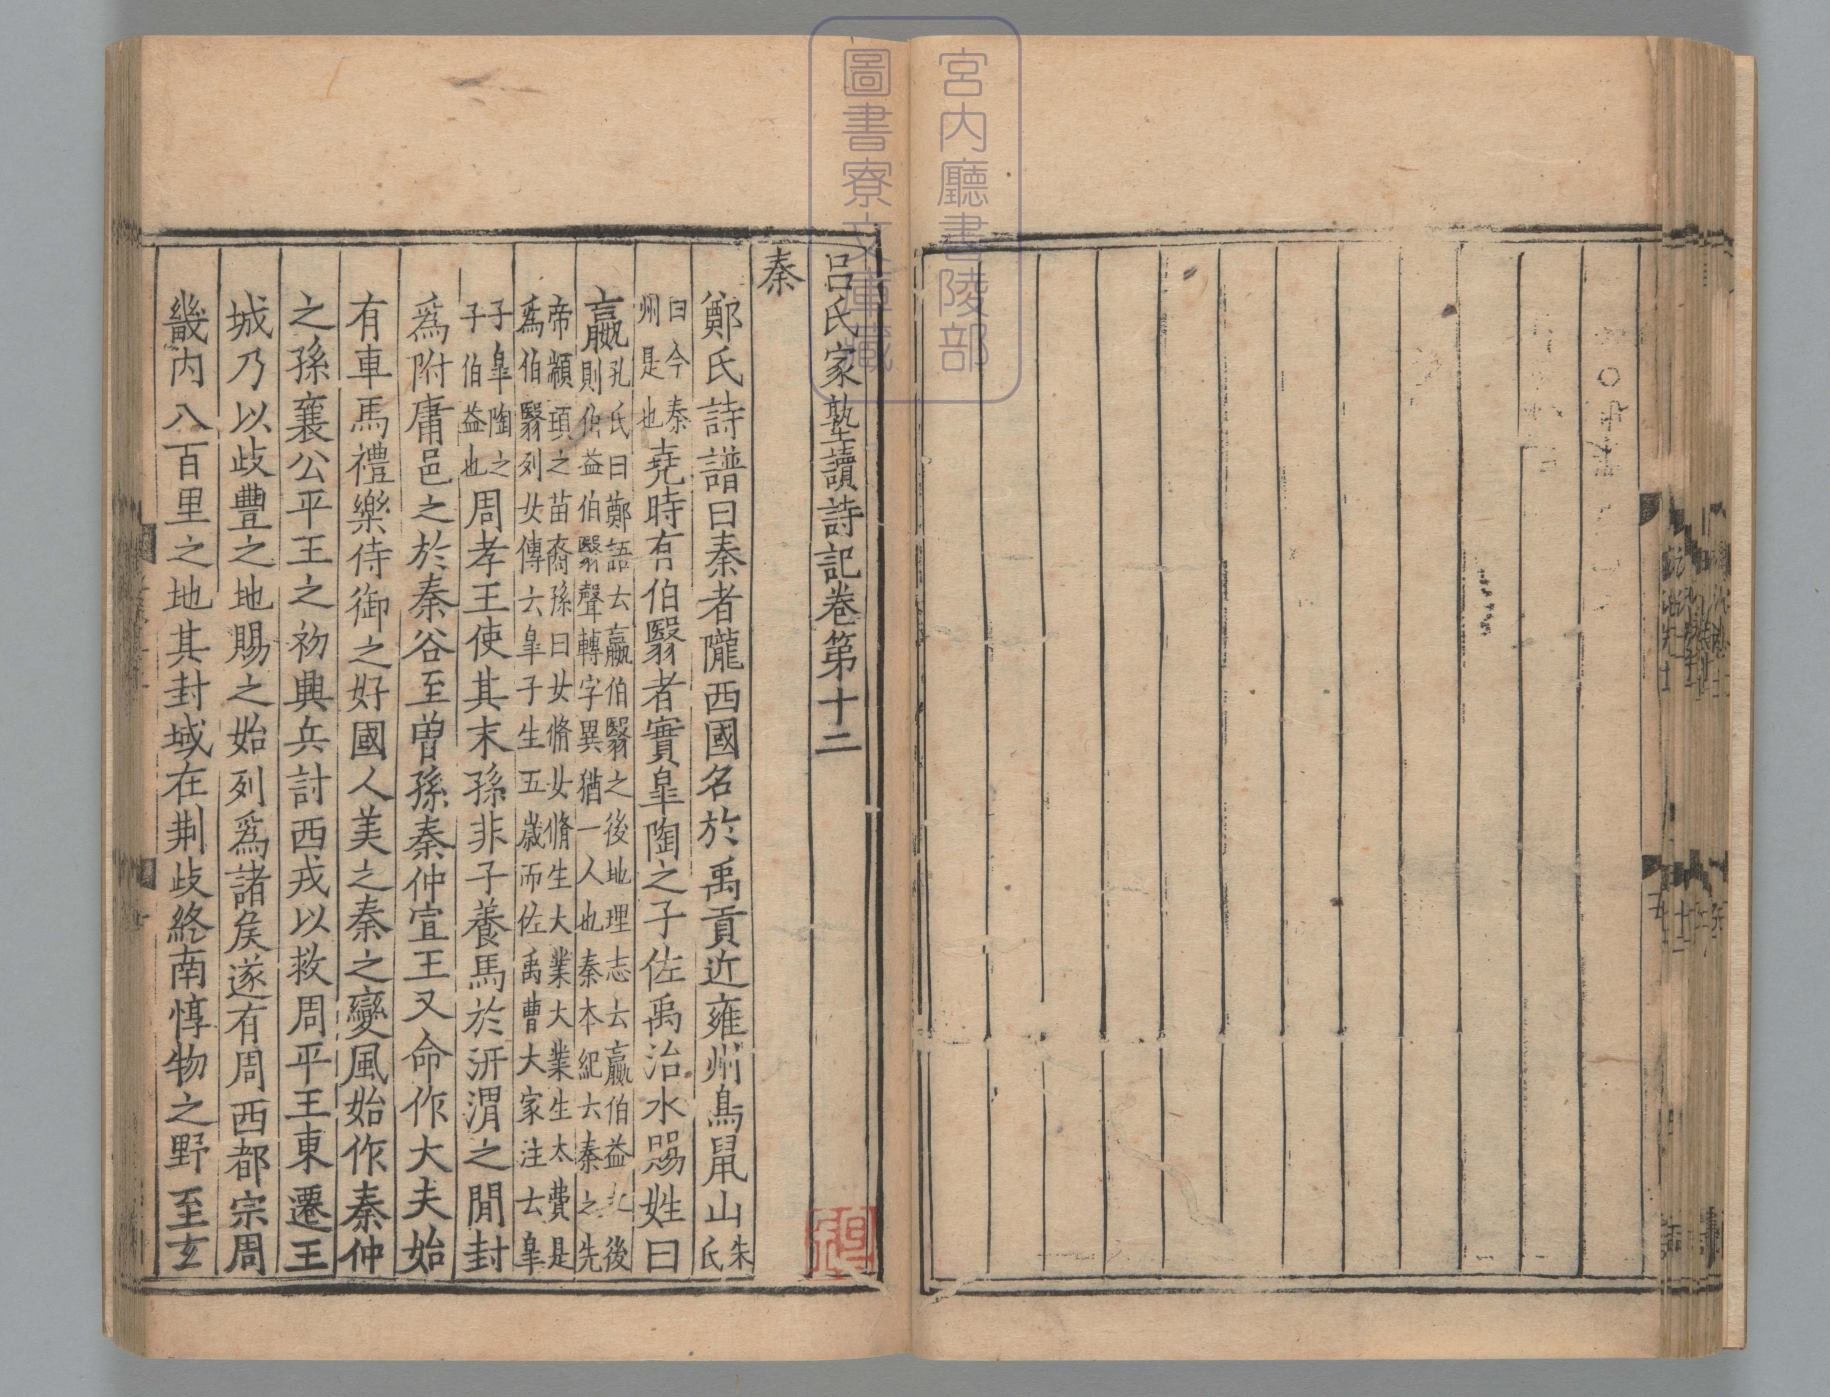 宮内廳書陵部
圖書寮文庫藏
呂氏家塾讀詩記卷第十二
秦
鄭氏詩譜曰秦者隴西國名於禹貢近雍州鳥鼠山朱氏
曰今秦州是也堯時有伯翳者實皐陶之子佐禹治水賜姓曰
嬴孔氏曰鄭語云嬴伯翳之後地理志云嬴伯益之後則伯益伯翳聲轉字異猶一人也秦本紀云秦之先
帝顓頊之苗裔孫曰女脩女脩生大業大業生太費是爲伯翳列女傳云皐子生五歲而佐禹曹大家注云皐
子皐陶之子伯益也周孝王使其末孫非子養馬於汧渭之閒封
爲附庸邑之於秦谷至曾孫秦仲宣王又命作大夫始
有車馬禮樂侍御之好國人美之秦之變風始作秦仲
之孫襄公平王之初興兵討西戎以救周平王東遷王
城乃以歧豐之地賜之始列爲諸矦遂有周西都宗周
畿内八百里之地其封域在荆歧終南惇物之野至玄